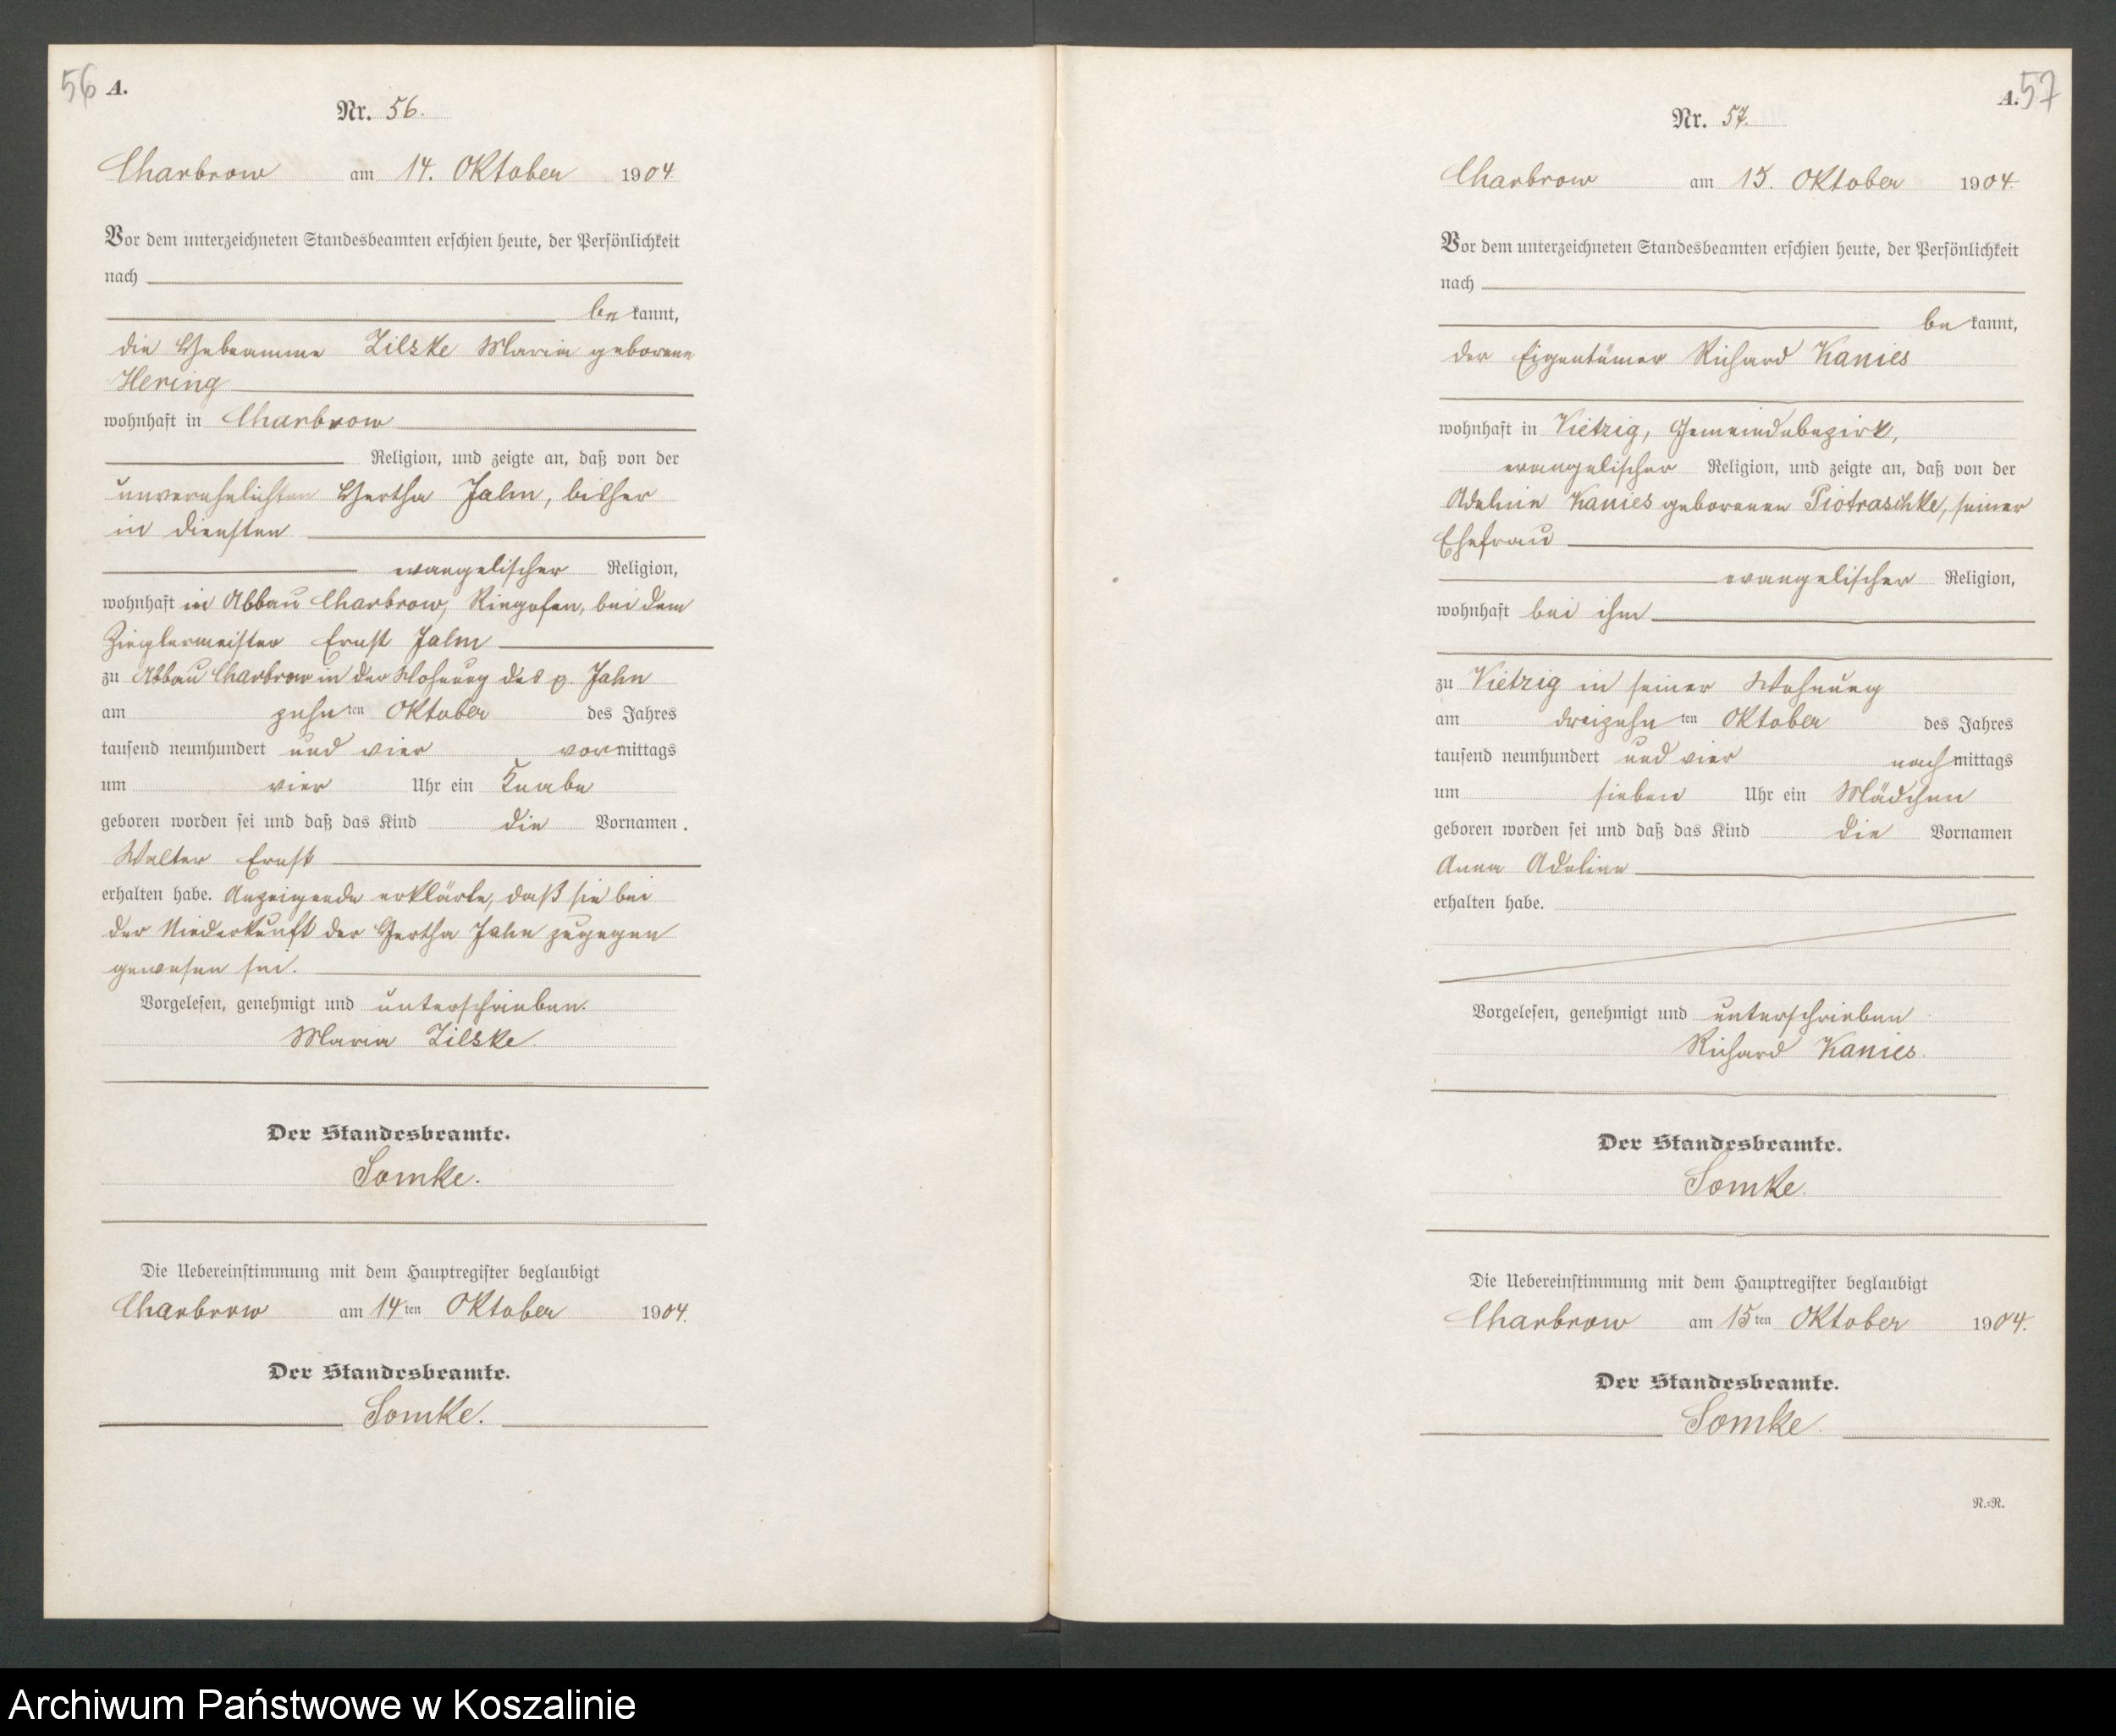 56 A.
Nr. 56.
Charbrow am 14. Oktober 1904.
Vor dem unterzeichneten Standesbeamten erschien heute, der Persönlichkeit
nach
be kannt,
die Hebeamme Zilske Maria geborene
Hering
wohnhaft in Charbrow
Religion, und zeigte an, daß von der
unverehelichten Hertha Jahn, bisher
in Diensten
evangelischer Religion,
wohnhaft in Abbau Charbrow, Ringofen, bei dem
Zieglermeister Ernst Jahn
zu Abbau Charbrow in der Wohnung des p. Jahn
am zehn ten Oktober des Jahres
tausend neunhundert und vier vormittags
um vier Uhr ein Knabe
geboren worden sei und daß das Kind die Vornamen.
Walter Ernst
erhalten habe. Anzeigende erklärte, daß sie bei
der Niederkunft der Hertha Jahn zugegen
gewesen sei.
Vorgelesen, genehmigt und unterschrieben.
Maria Zilske.
Der Standesbeamte.
Somke.
Die Uebereinstimmung mit dem Hauptregister beglaubigt
Charbrow am 14ten Oktober 1904.
Der Standesbeamte.
Somke.
A. 57
Nr. 57.
Charbrow am 15. Oktober 1904.
Vor dem unterzeichneten Standesbeamten erschien heute, der Persönlichkeit
nach
be kannt,
der Eigentümer Richard Kanies
wohnhaft in Vietzig, Gemeindebezirk,
evangelischer Religion, und zeigte an, daß von der
Adeline Kanies geborenen Piotraschke, seiner
Ehefrau
evangelischer Religion,
wohnhaft bei ihm
zu Vietzig in seiner Wohnung
am dreizehn ten Oktober des Jahres
tausend neunhundert und vier nachmittags
um sieben Uhr ein Mädchen
geboren worden sei und daß das Kind die Vornamen
Anna Adeline
erhalten habe.
Vorgelesen, genehmigt und unterschrieben
Richard Kanies.
Der Standesbeamte.
Somke.
Die Uebereinstimmung mit dem Hauptregister beglaubigt
Charbrow am 15ten Oktober 1904.
Der Standesbeamte.
Somke.
R.=R.
Archiwum Państwowe w Koszalinie